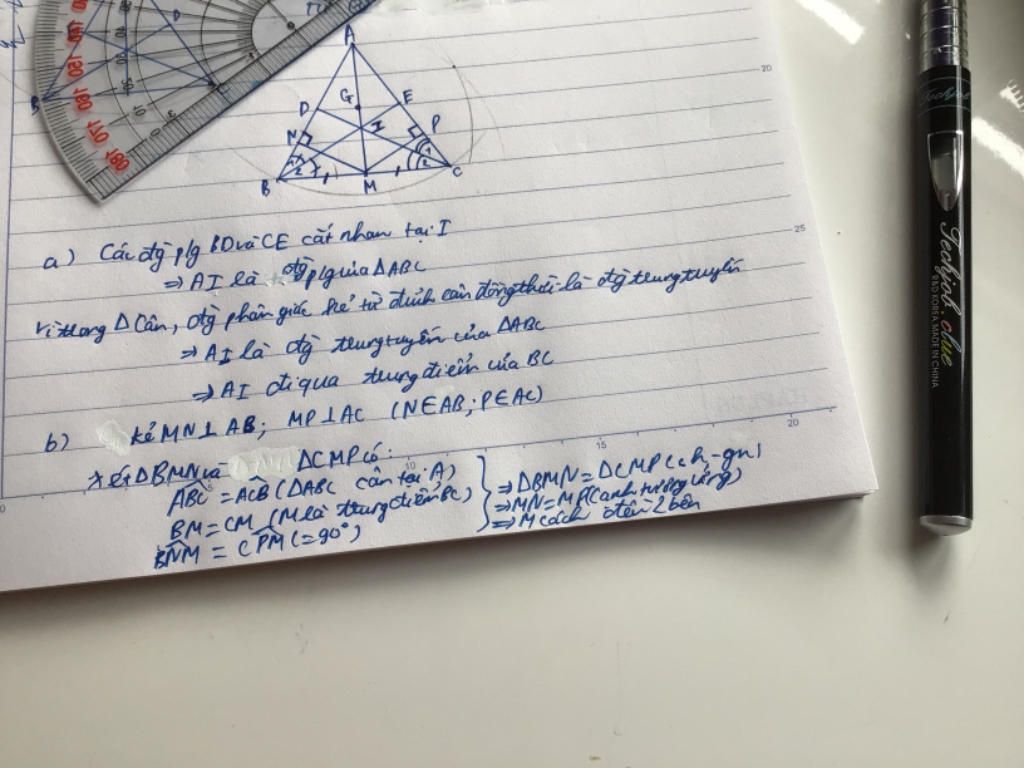 A
G
D
E
N
I
P
B
M
C
20
25
a) Các đg p/g BD và CE cắt nhau tại I
⇒ AI là đg p/g của ΔABC
Vì trong Δ Cân, đg phân giác kẻ từ đỉnh cân đồng thời là đg trung tuyến
⇒ AI là đg trung tuyến của ΔABC
⇒ AI đi qua trung điểm của BC
b) kẻ MN⊥AB; MP⊥AC (N∈AB; P∈AC)
Xét ΔBMN và ΔCMP có:
ABC = ACB (ΔABC cân tại A)
BM = CM (M là trung điểm BC)
BNM = CPM (=90°)
⇒ ΔBMN = ΔCMP (ch-gn)
⇒ MN = MP (cạnh tương ứng)
⇒ M cách đều 2 bên
0
10
15
20
180 170 160 150 140
Techjob.clue
MADE IN CHINA